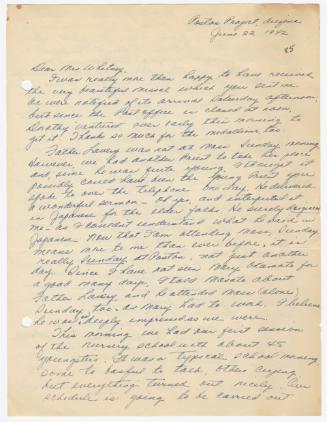 Poston Project, Arizona
June 22, 1942
Dear Mrs. Whitney,
I was really more than happy to have received
the very beautiful missal which you sent me.
We were notified of its arrival Saturday afternoon,
but since the Post office is closed at noon,
Dorothy ventured over early this morning to
get it. Thanks so much for the medallions too
Father Lavery was not at Mass Sunday morning
However, we had another Priest to take his place
and, since he was quite young, I thought it
possibly could have been the young Priest you
spoke to over the telephone one day. He delivered
a wonderful sermon - oh yes, and interpreted it
in Japanese for the older folks. He surely
me - as I couldn't understand what he said in
Japanese. Now that I am attending Mass, Sunday
means more to me than ever before, it is
really Sunday at Poston, not just another
day. Since I have not seen Mary Okamoto for
a good many days, I told about
Father Lavery, and he attended Mass (alone)
Sunday, too, as Mary had to work. I believe
he was deeply impressed as we were.
This morning we had our first session
of the nursery school with about 45
youngsters. It was a typical school morning,
some too bashful to talk, others crying
but everything turned out nicely. Our
schedule is going to be carried out